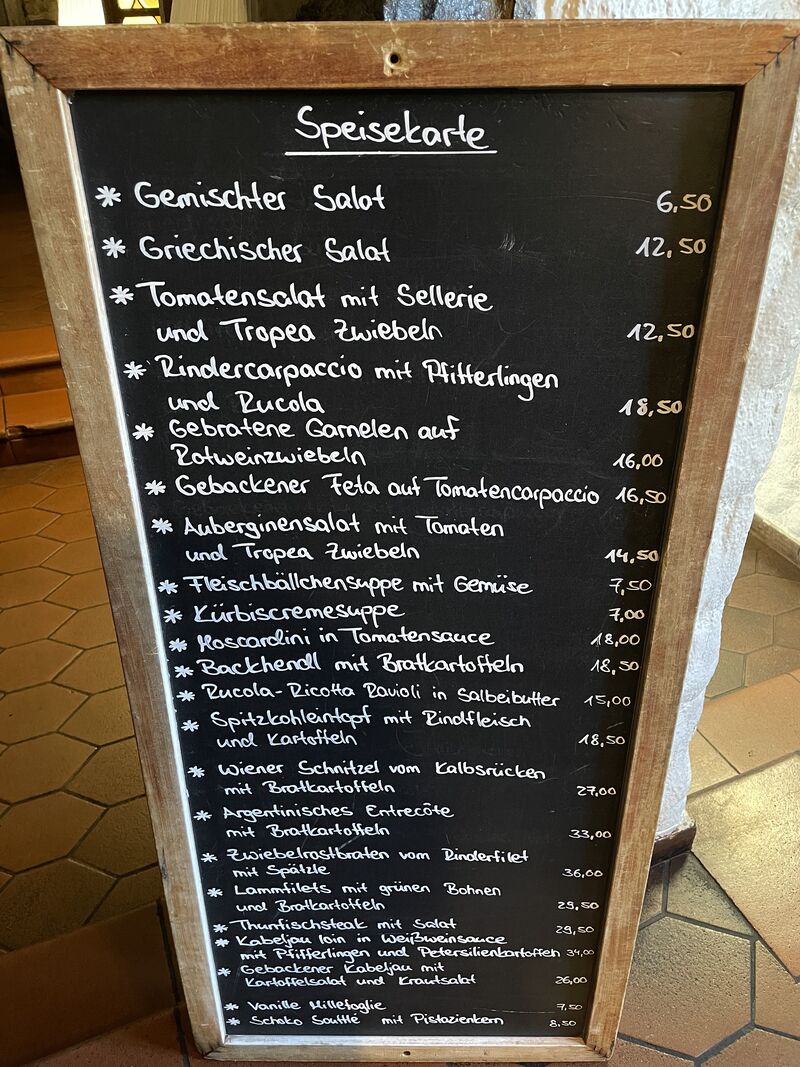 Speisekarte
* Gemischter Salat 6,50
* Griechischer Salat 12,50
* Tomatensalat mit Sellerie
und Tropea Zwiebeln 12,50
* Rindercarpaccio mit Pfifferlingen
und Rucola 18,50
* Gebratene Garnelen auf
Rotweinzwiebeln 16,00
* Gebackener Feta auf Tomatencarpaccio 16,50
* Auberginensalat mit Tomaten
und Tropea Zwiebeln 14,50
* Fleischbällchensuppe mit Gemüse 7,50
* Kürbiscremesuppe 7,00
* Moscardini in Tomatensauce 18,00
* Backhendl mit Bratkartoffeln 18,50
* Rucola-Ricotta Ravioli in Salbeibutter 15,00
* Spitzkohleintopf mit Rindfleisch
und Kartoffeln 18,50
* Wiener Schnitzel vom Kalbsrücken
mit Bratkartoffeln 27,00
* Argentinisches Entrecôte
mit Bratkartoffeln 33,00
* Zwiebelrostbraten vom Rinderfilet
mit Spätzle 36,00
* Lammfilets mit grünen Bohnen
und Bratkartoffeln 29,50
* Thunfischsteak mit Salat 29,50
* Kabeljau loin in Weißweinsauce
mit Pfifferlingen und Petersilienkartoffeln 34,00
* Gebackener Kabeljau mit
Kartoffelsalat und Krautsalat 26,00
* Vanille Millefoglie 7,50
* Schoko Soufflé mit Pistazienkern 8,50